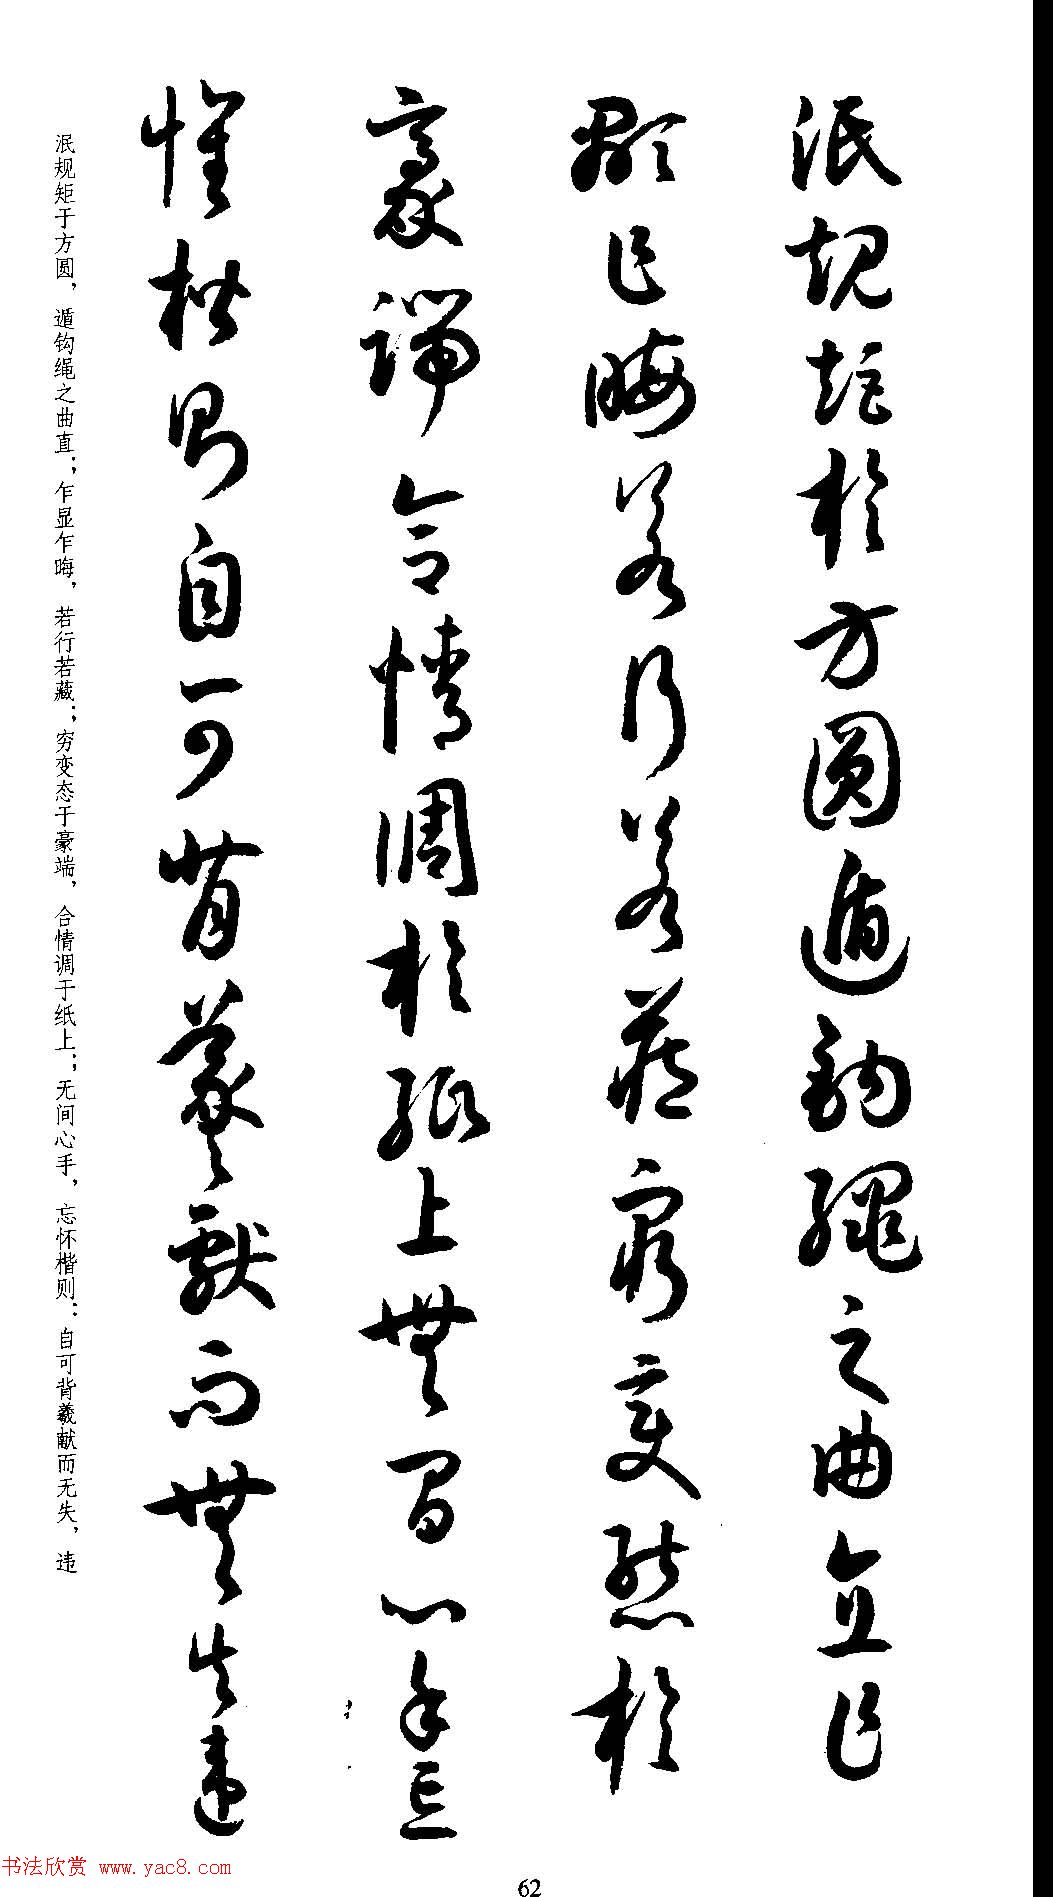 泯規矩於方圓遁鈎繩之曲直乍
顯乍晦若行若藏窮變態於
豪端合情調於紙上無間心手忘
懷楷則自可背羲獻而無失違
泯规矩于方圆，遁钩绳之曲直；乍显乍晦，若行若藏；穷变态于豪端，合情调于纸上；无间心手，忘怀楷则：自可背羲献而无失，违
书法欣赏 www.yac8.com
62